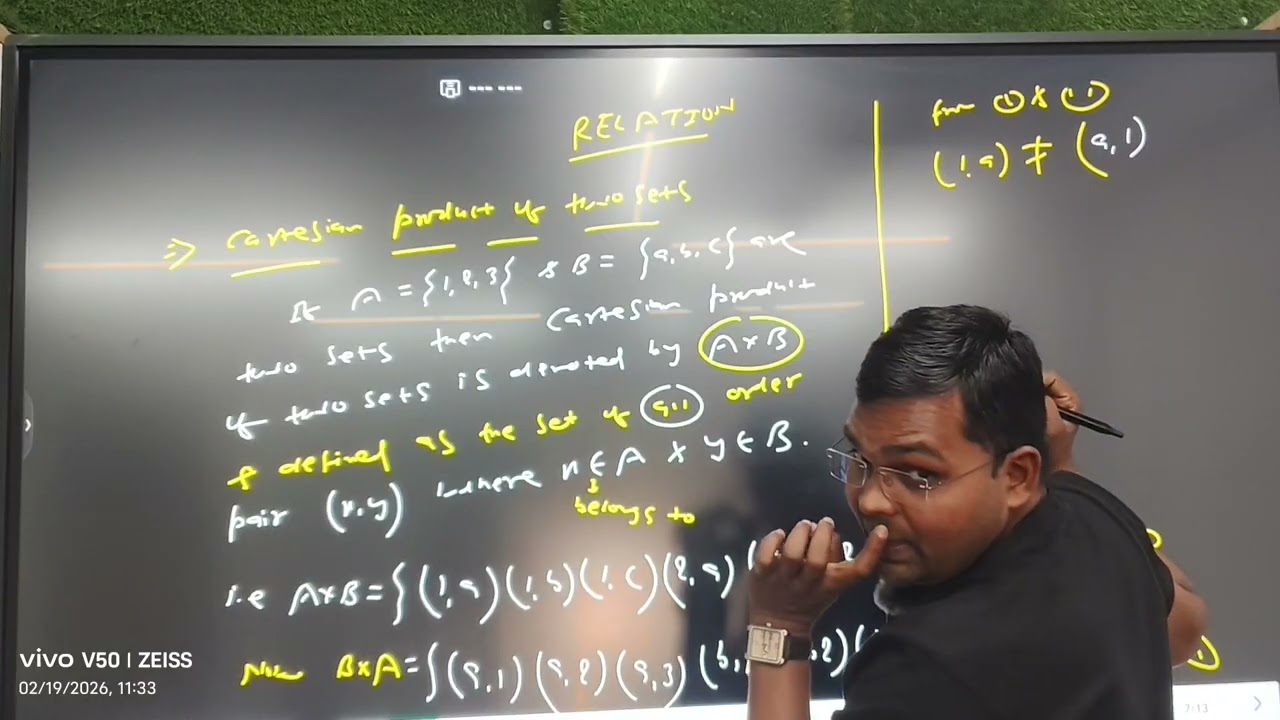 RELATION
⇒ Cartesian product of two sets
If A = {1, 2, 3} & B = {a, b, c} are
two sets then Cartesian product
of two sets is denoted by A×B
& defined as the set of all order
pair (x, y) where x ∈ A & y ∈ B.
belongs to
i.e A×B = {(1, a) (1, b) (1, c) (2, a)
Now B×A = {(a, 1) (a, 2) (a, 3) (b,
from (i) & (ii)
(1, a) ≠ (a, 1)
vivo V50 | ZEISS
02/19/2026, 11:33
7/13